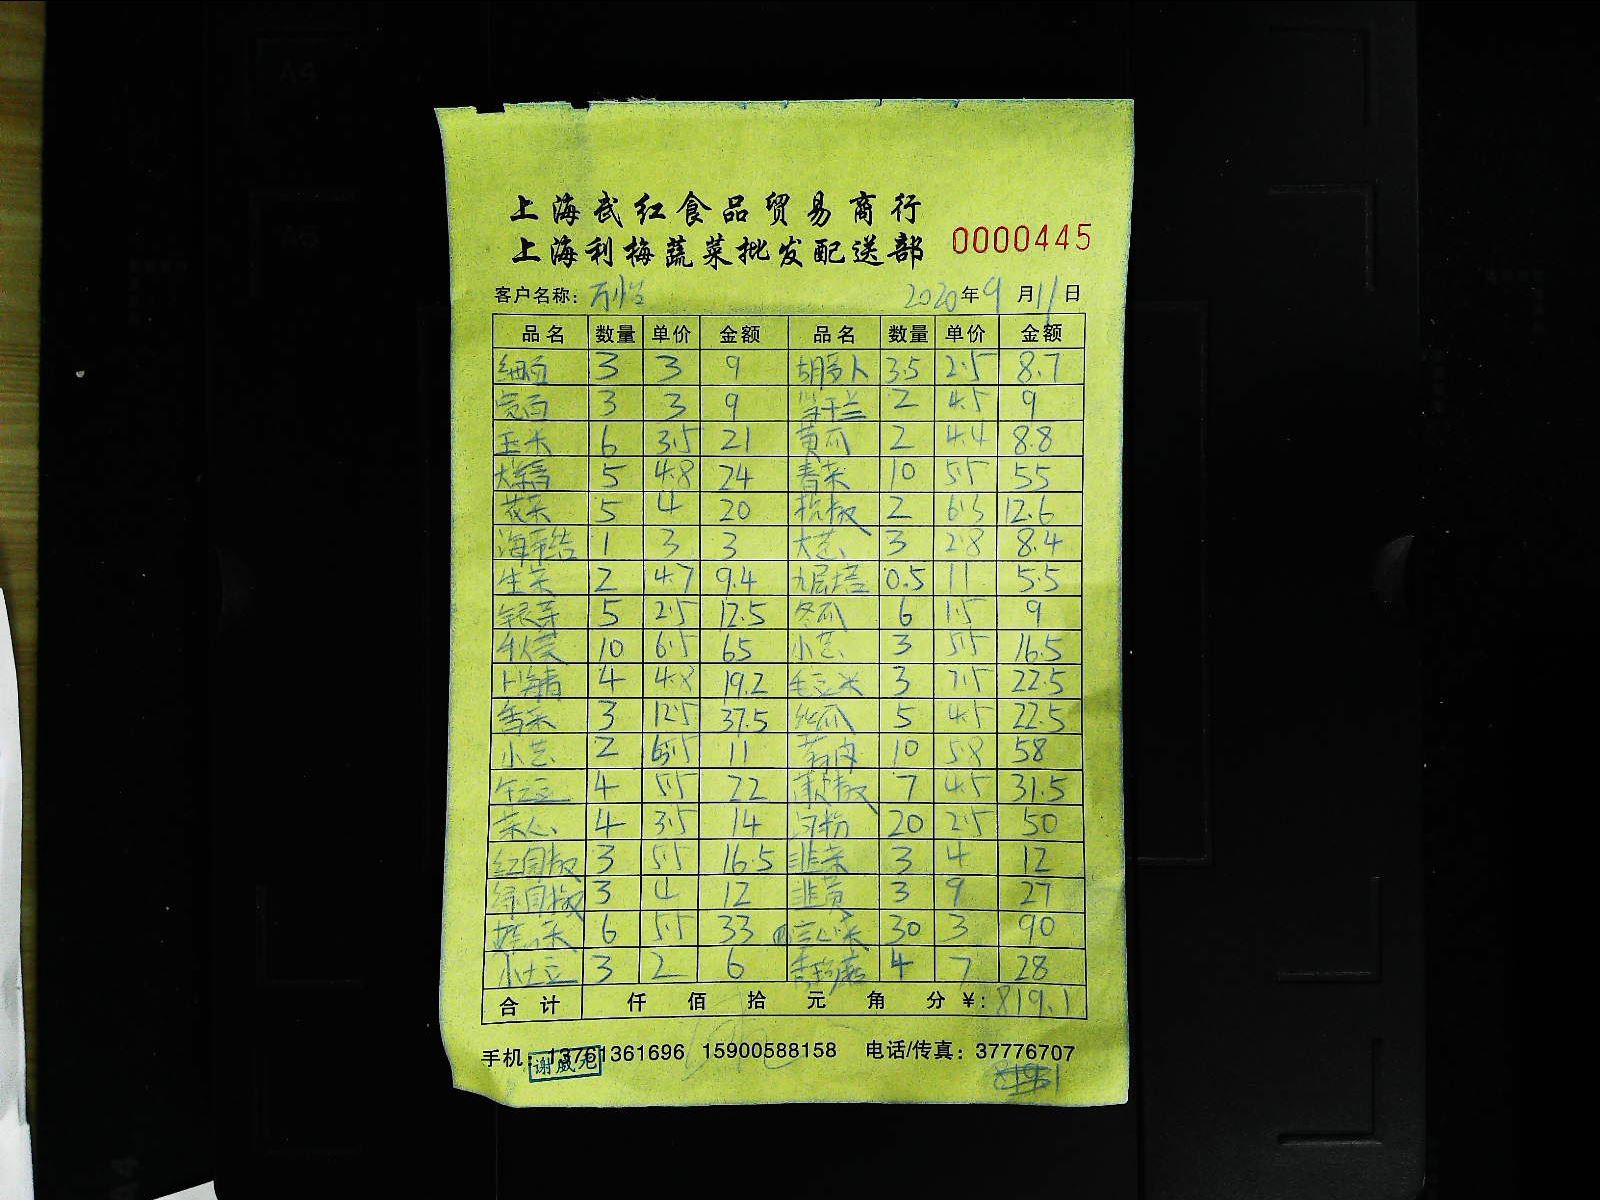 上海武红食品贸易商行
上海利梅蔬菜批发配送部 0000445
客户名称: 万怡 2020年9月11日
品名 数量 单价 金额 品名 数量 单价 金额
细面 3 3 9 胡萝卜 3.5 2.5 8.7
宽面 3 3 9 2 4.5 9
玉米 6 3.5 21 黄瓜 2 4.4 8.8
5 4.8 24 青菜 10 5.5 55
花菜 5 4 20 杭椒 2 6.3 12.6
海带结 1 3 3 大芒 3 2.8 8.4
生菜 2 4.7 9.4 九层塔 0.5 11 5.5
银芽 5 2.5 12.5 冬瓜 6 1.5 9
10 6.5 65 小芒 3 5.5 16.5
上海青 4 4.8 19.2 毛豆米 3 7.5 22.5
香菜 3 12.5 37.5 丝瓜 5 4.5 22.5
小芒 2 5.5 11 10 5.8 58
4 5.5 22 7 4.5 31.5
菜心 4 3.5 14 河粉 20 2.5 50
红圆椒 3 5.5 16.5 韭菜 3 4 12
绿圆椒 3 4 12 韭黄 3 9 27
6 5.5 33 空心菜 30 3 90
小土豆 3 2 6 4 7 28
合计 仟 佰 拾 元 角 分 ¥: 819.1
手机: 13761361696 15900588158 电话/传真: 37776707
谢